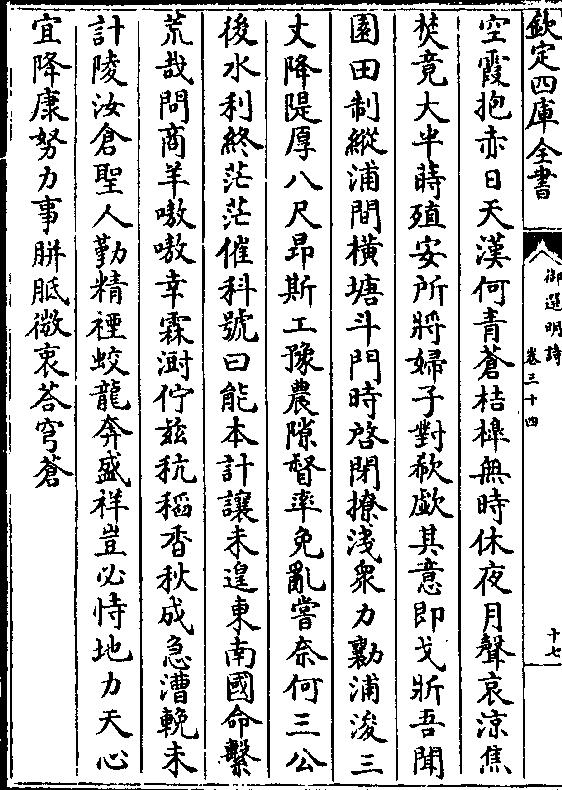 欽定四庫全書
御選明詩
卷三十四
十七
空霞抱赤日天漢何青蒼桔橰無時休夜月聲哀涼焦
焚竟大半時殖安所將婦子對欷歔其意即戈斨吾聞
園田制縱浦間橫塘斗門時啓閉撩淺衆力勷浦浚三
丈降隄厚八尺昂斯工豫農隙督率免亂嘗奈何三公
後水利終茫茫催科號曰能本計讓未遑東南國命繫
荒哉問商羊嗷嗷幸霖澍佇兹秔稻香秋成急漕輓未
計陵汝倉聖人勤精禋蛟龍奔盛祥豈必恃地力天心
宜降康努力事胼胝微衷荅穹蒼